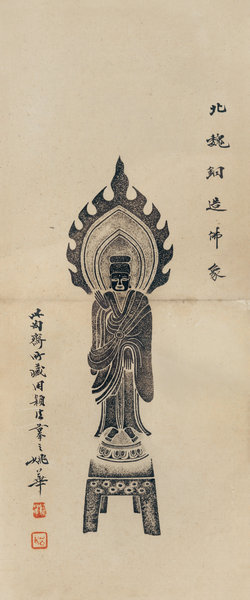 北魏銅造佛象
匋齋所藏用穎法摹之姚華